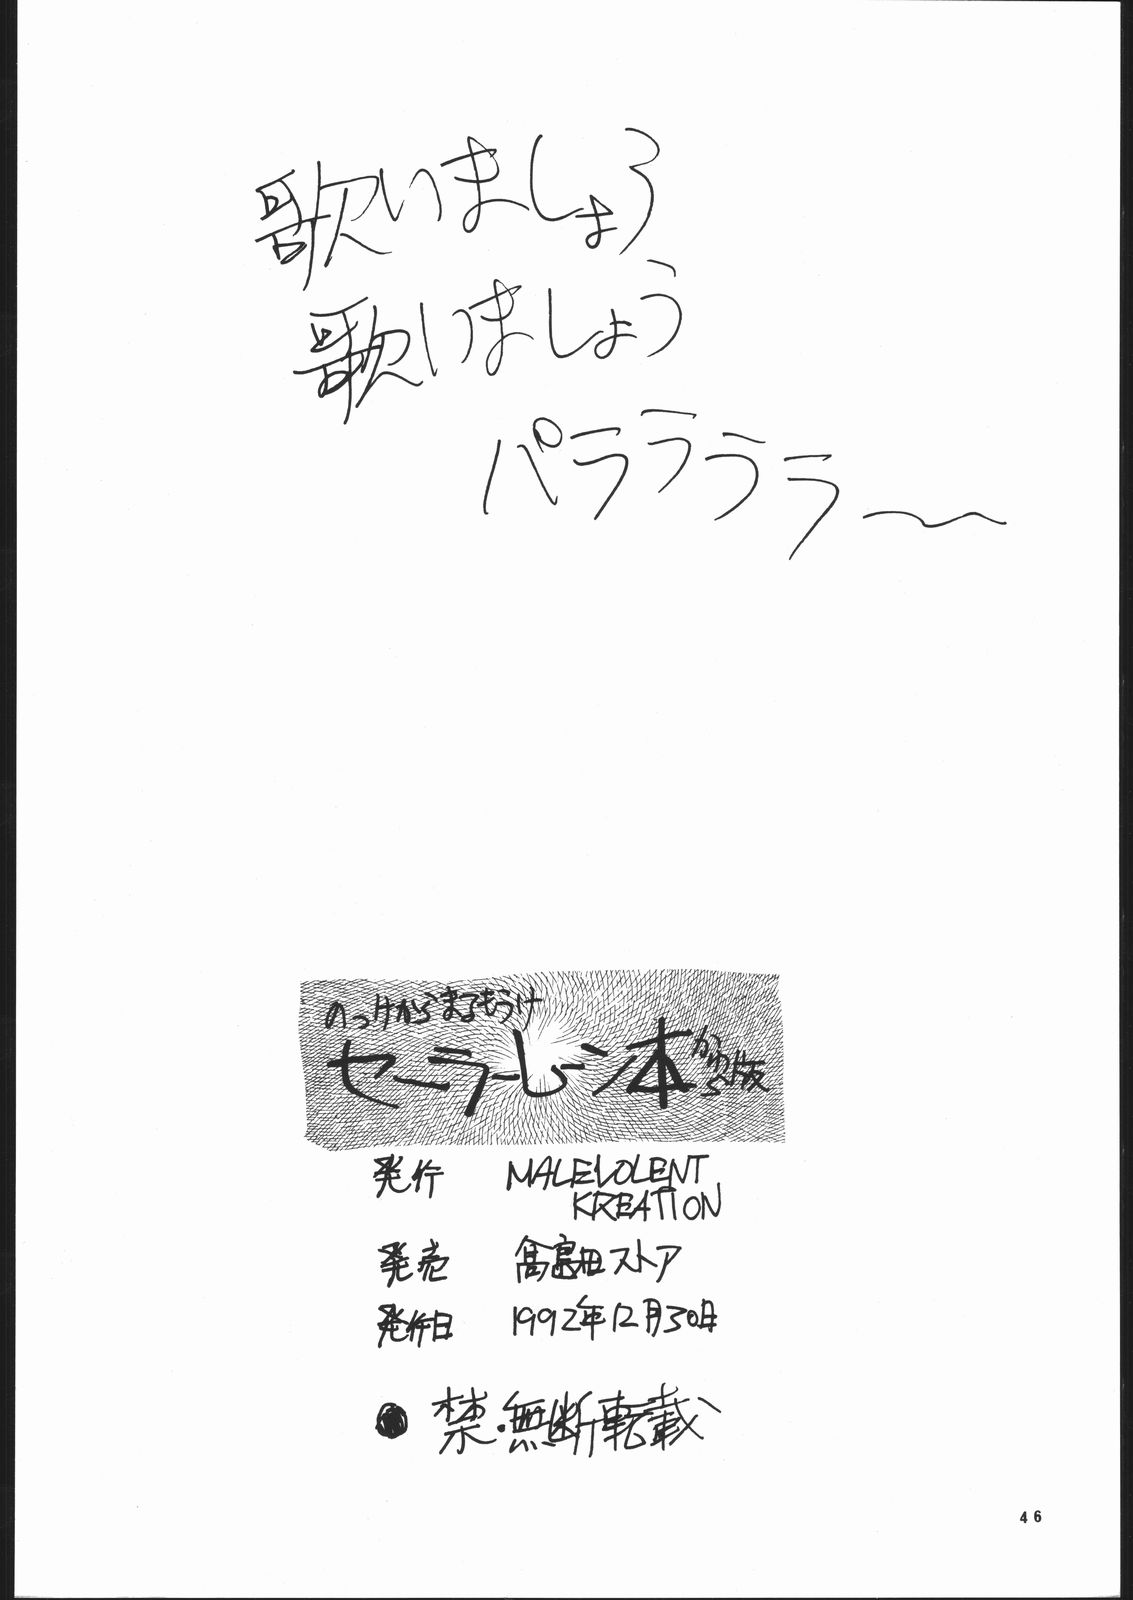 歌いましょう
歌いましょう
パララララ〜
のっけからまるもうけ
セーラームーン本 かゆら版
発行 MALEVOLENT
KREATION
発売 髙島田ストア
発行日 1992年12月30日
● 禁・無断転載
46